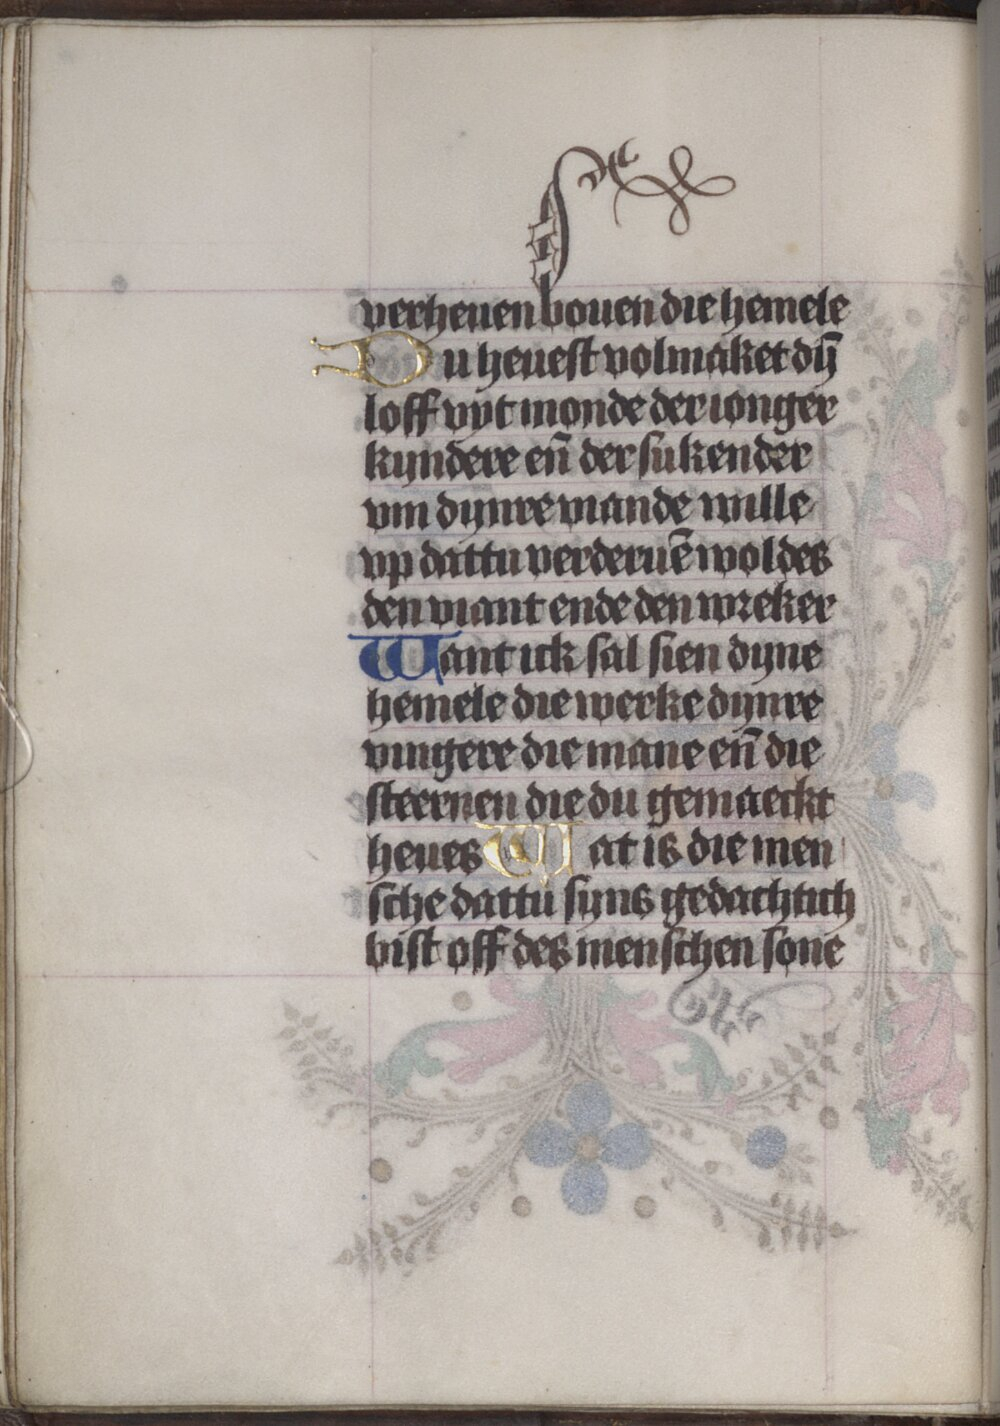 verheuen bouen die hemele
Du heuest volmaket dyn̄
loff vyt monde der ionger
kyndere en̄ der sukender
vm dynre viande wille
vp dattu verderuē woldes
den viant ende den wreker
Want ick sal sien dyne
hemele die werke dynre
vingere die mane en̄ die
steernen die du gemaeckt
heues Wat is die men
sche dattu syns gedachtich
bist off des menschen sone